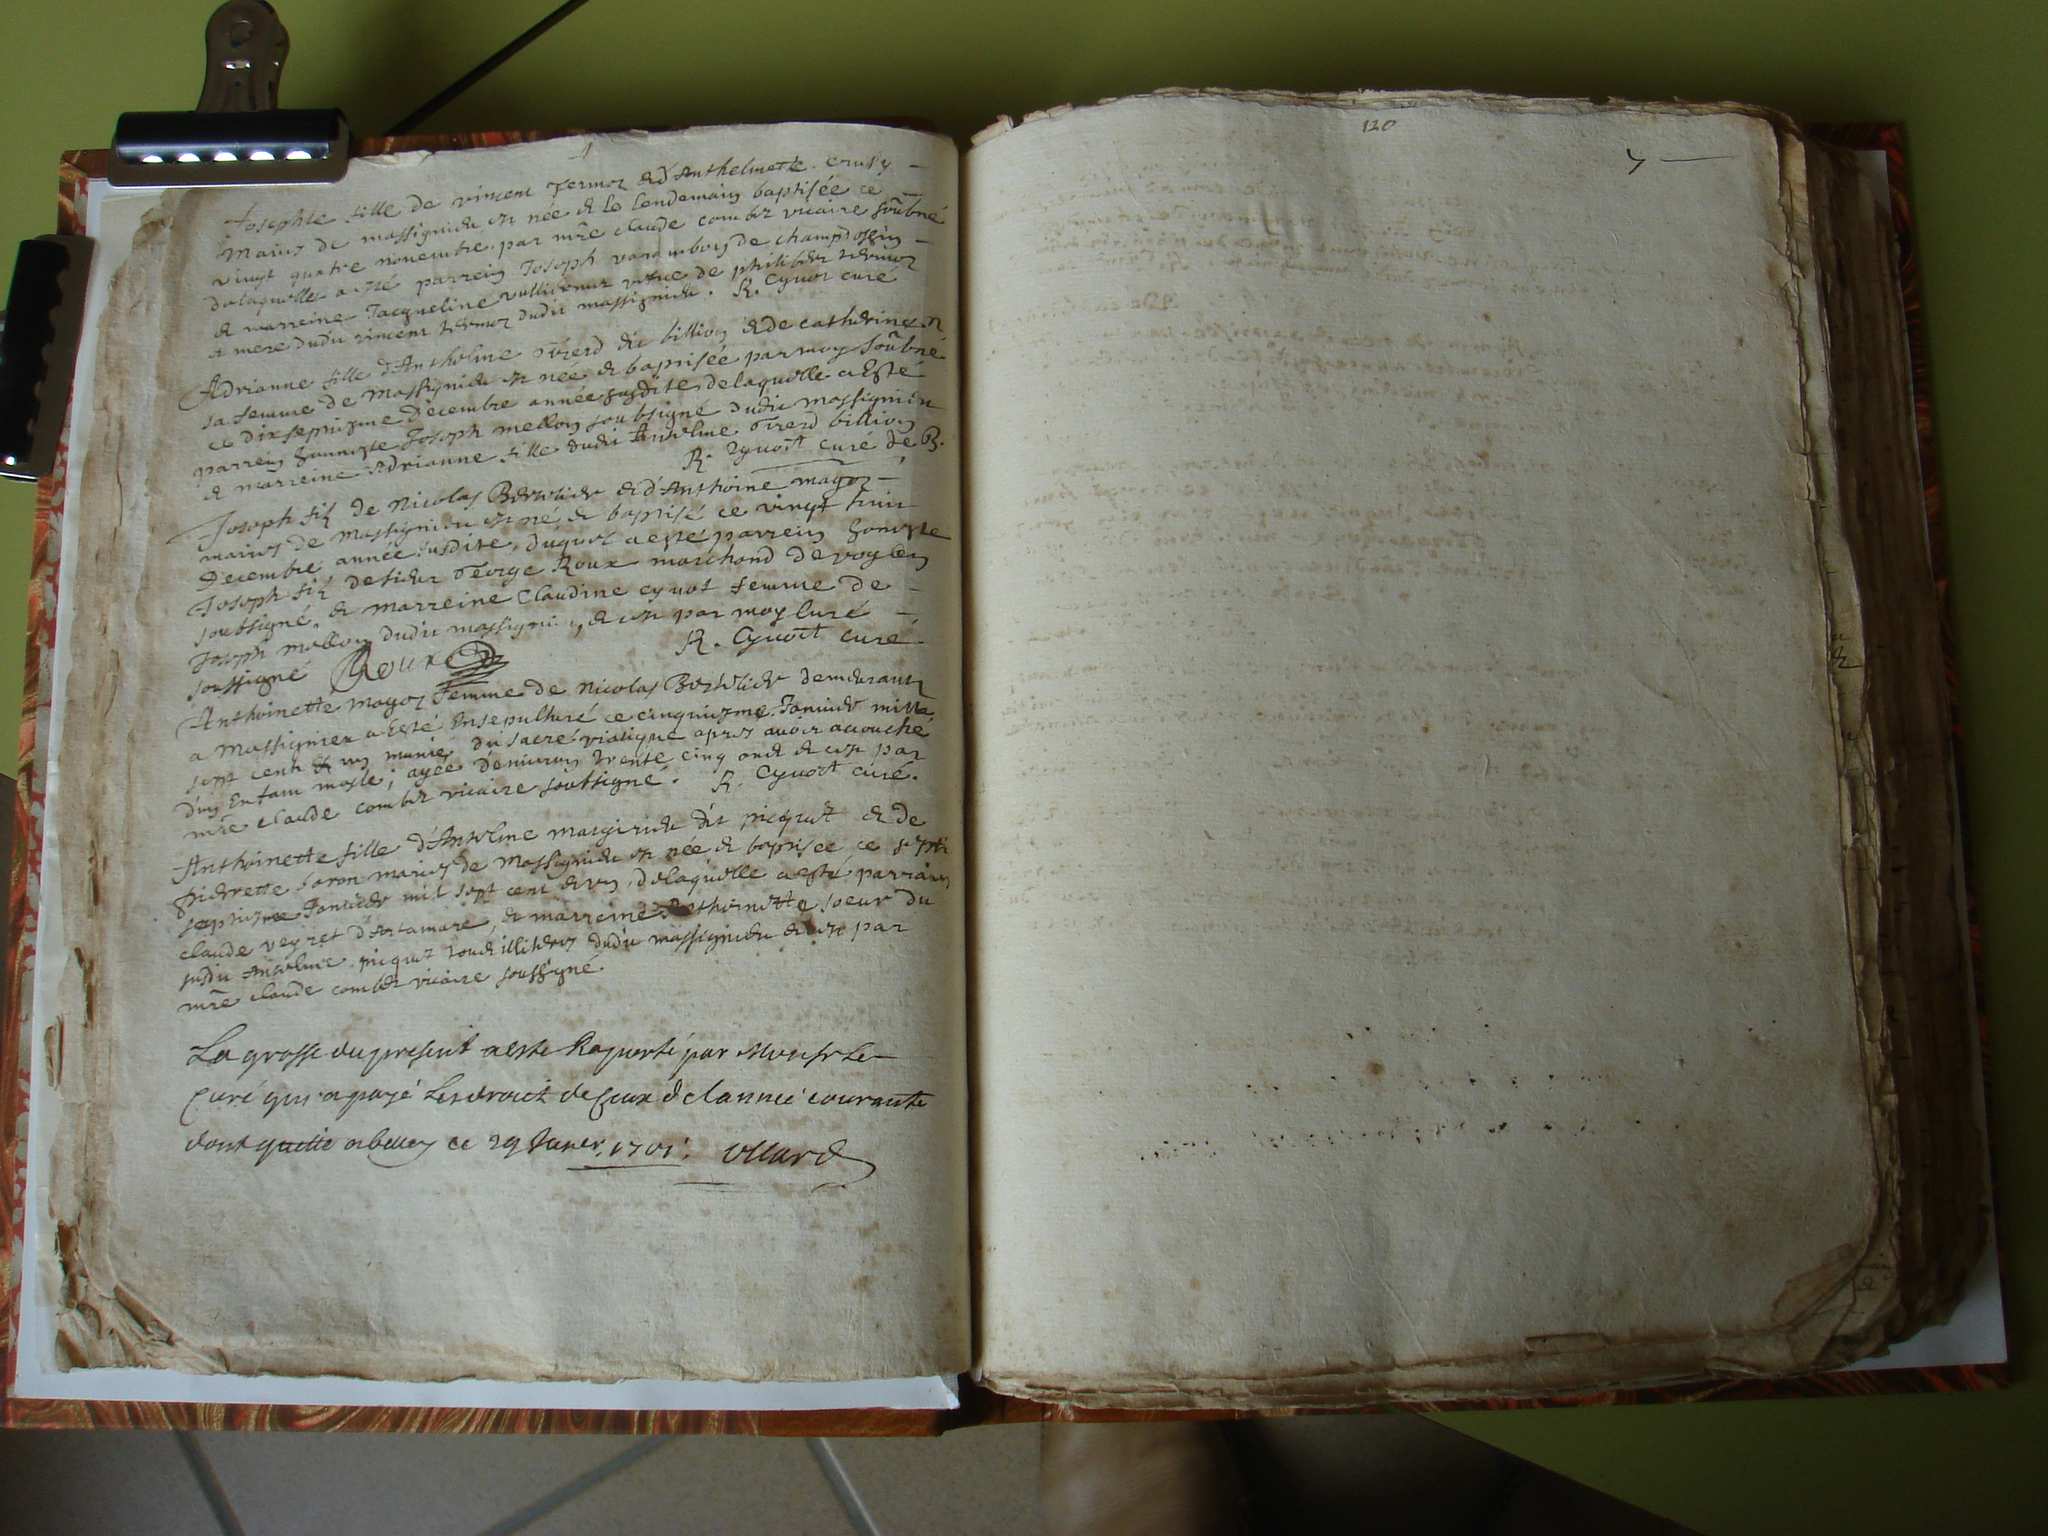 Josephte fille de vincent Termoz & d'Anthelmette crusy
mariés de massignieu est née & le lendemain baptisée ce
vingt quatre novembre par mre claude combet vicaire soubné
delaquelle a esté parrein Joseph varambon de champdossin
& marreine Jacqueline vefve de philibert termoz
& mere dudit vincent termoz dudit massignieu. R. Cyvoct curé
Adrianne fille d'Anthelme Tirerd dit billion & de catherine
sa femme de Massignieu est née & baptisée par moy soubné
ce dixseptiezme Decembre année susdite, delaquelle a Esté
parrein honneste Joseph mellon soubsigné dudit massignieu
& marreine Adrianne fille dudit Anthelme Tirerd billion
R. Cyvoct curé de B.
Joseph filz de Nicolas Berthier & d'Anthoine magoz
mariés de Massignieu est né & baptisé ce vingt huit
Decembre année susdite, duquel a esté parrein honneste
Joseph filz de sieur George Roux marchand de
soubsigné, & marreine Claudine cyvot femme de
Joseph mellon dudit massignieu, & est par moy Curé
soussigné Roux R. Cyvoct curé.
Anthoinette magoz femme de Nicolas Berthier demeurantz
a Massignieu a Esté Ensepulturé ce cinquiezme Janvier mille
sept cent & un munie du sacré viatique apres avoir accouché
d'un Enfant masle; agée d'environ trente cinq ans & est par
mre claude combet vicaire soubsigné. R. Cyvoct curé.
Anthoinette fille d'Anthelme marginieu dit picquet & de
pierrette mariés de Massignieu est née & baptisée ce
septiezme Janvier mil sept cent & un, delaquelle a esté parrain
claude veyret d'Artamare, & marreine Anthoinette soeur du
susdit Anthelme picquet dudit massignieu & est par
mre claude combet vicaire soussigné.
La grosse du present a esté Raporté par Monsr Le
Curé qui a payé Les droict de ceux de l'année courante
dont quitte a belley ce 29 Janer. 1701.
120
7